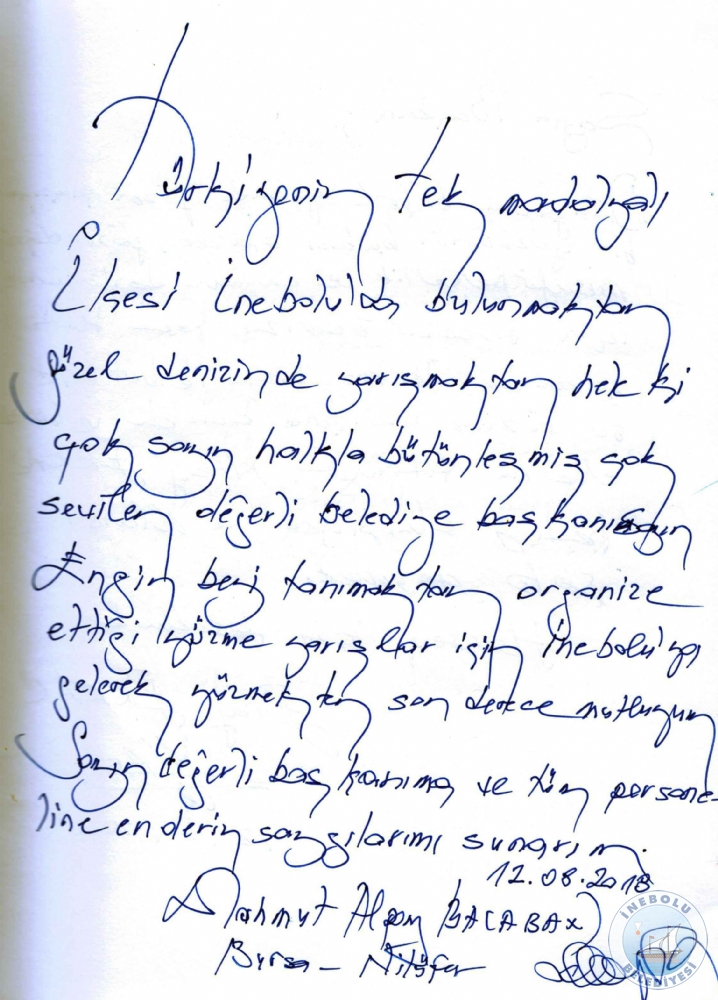 Türkiyenin tek madalyalı
İlçesi İnebolu'da bulunmaktan
güzel denizinde yarışmaktan
çok sayın halkla bütünleşmiş çok
sevilen değerli belediye başkanı Sayın
Engin beyi tanımaktan organize
ettiği yüzme yarışları için İnebolu'ya
gelerek yüzmekten son derece mutluyum
Sayın değerli başkanıma ve tüm persone-
line en derin saygılarımı sunarım.
12.08.2018
Mahmut Alpay
Bursa - Nilüfer
İNEBOLU
BELEDİYESİ